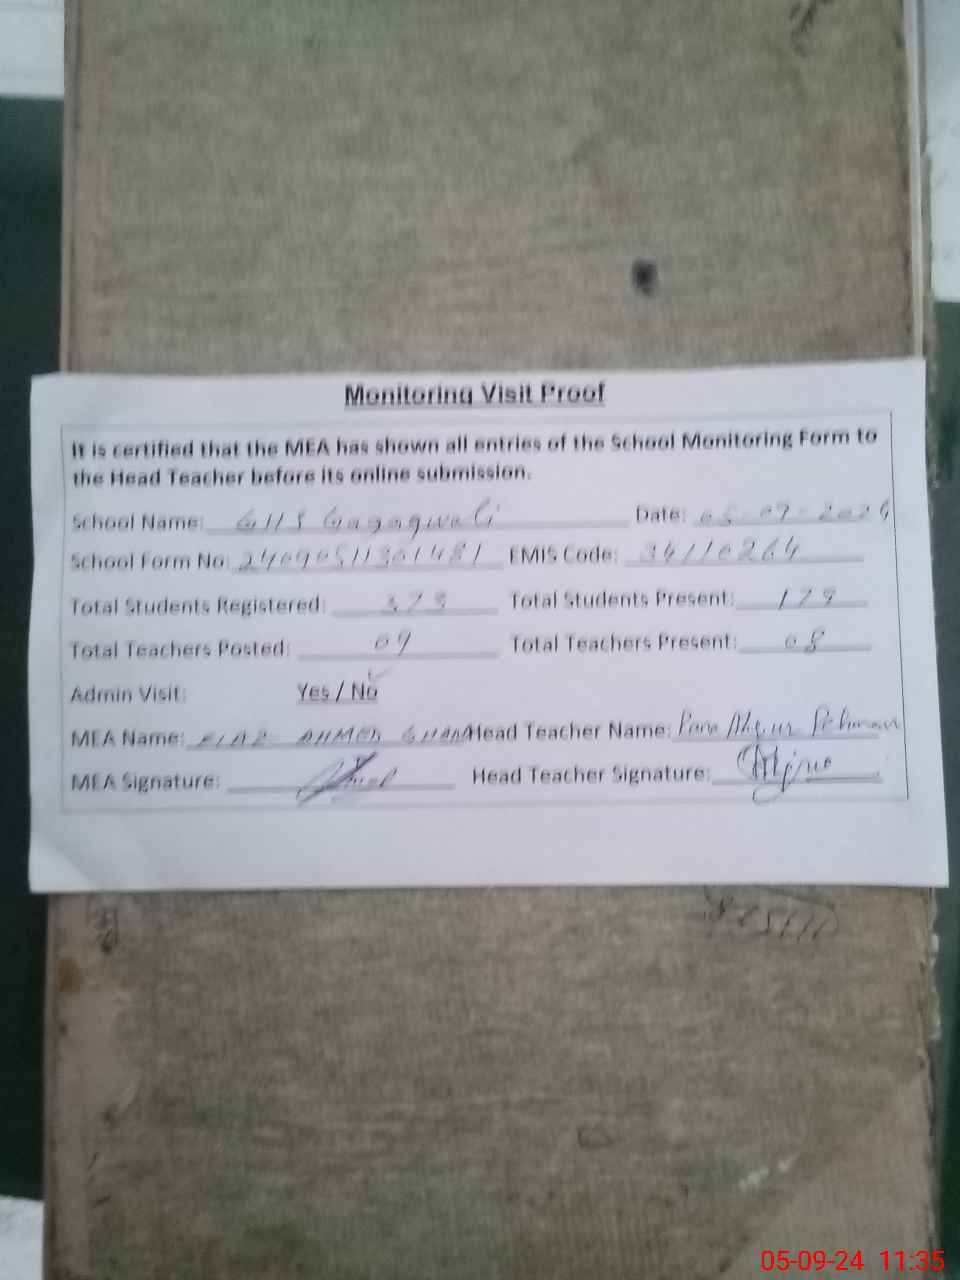 Monitoring Visit Proof
It is certified that the MEA has shown all entries of the School Monitoring Form to
the Head Teacher before its online submission.
School Name: GHS Gagaqwali Date: 05-09-2024
School Form No: 24090511301481 EMIS Code: 34110264
Total Students Registered: 373 Total Students Present: 179
Total Teachers Posted: 09 Total Teachers Present: 08
Admin Visit: Yes / No
MEA Name: AHMED Head Teacher Name: Rana
MEA Signature: Head Teacher Signature:
05-09-24 11:35